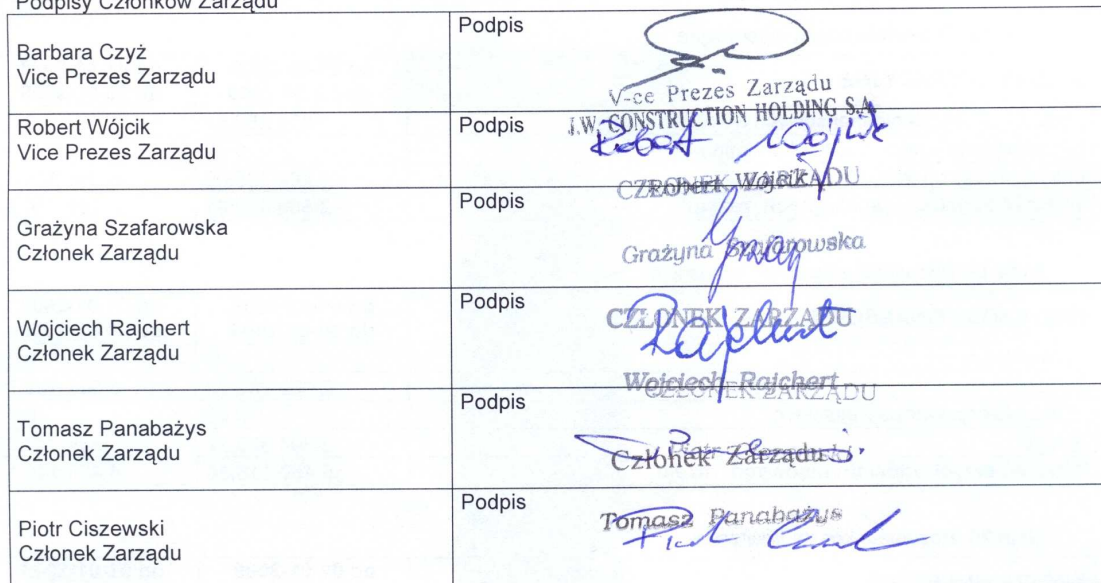 Podpisy Członków Zarządu
Barbara Czyż
Vice Prezes Zarządu
Podpis
V-ce Prezes Zarządu
J.W. CONSTRUCTION HOLDING S.A.
Robert Wójcik
Vice Prezes Zarządu
Podpis
Robert Wójcik
CZŁONEK ZARZĄDU
Robert Wójcik
Grażyna Szafarowska
Członek Zarządu
Podpis
Grażyna Szafarowska
Wojciech Rajchert
Członek Zarządu
Podpis
CZŁONEK ZARZĄDU
Rajchert
Wojciech Rajchert
CZŁONEK ZARZĄDU
Tomasz Panabażys
Członek Zarządu
Podpis
Piotr Ciszewski
Członek Zarządu
Piotr Ciszewski
Członek Zarządu
Podpis
Tomasz Panabażys